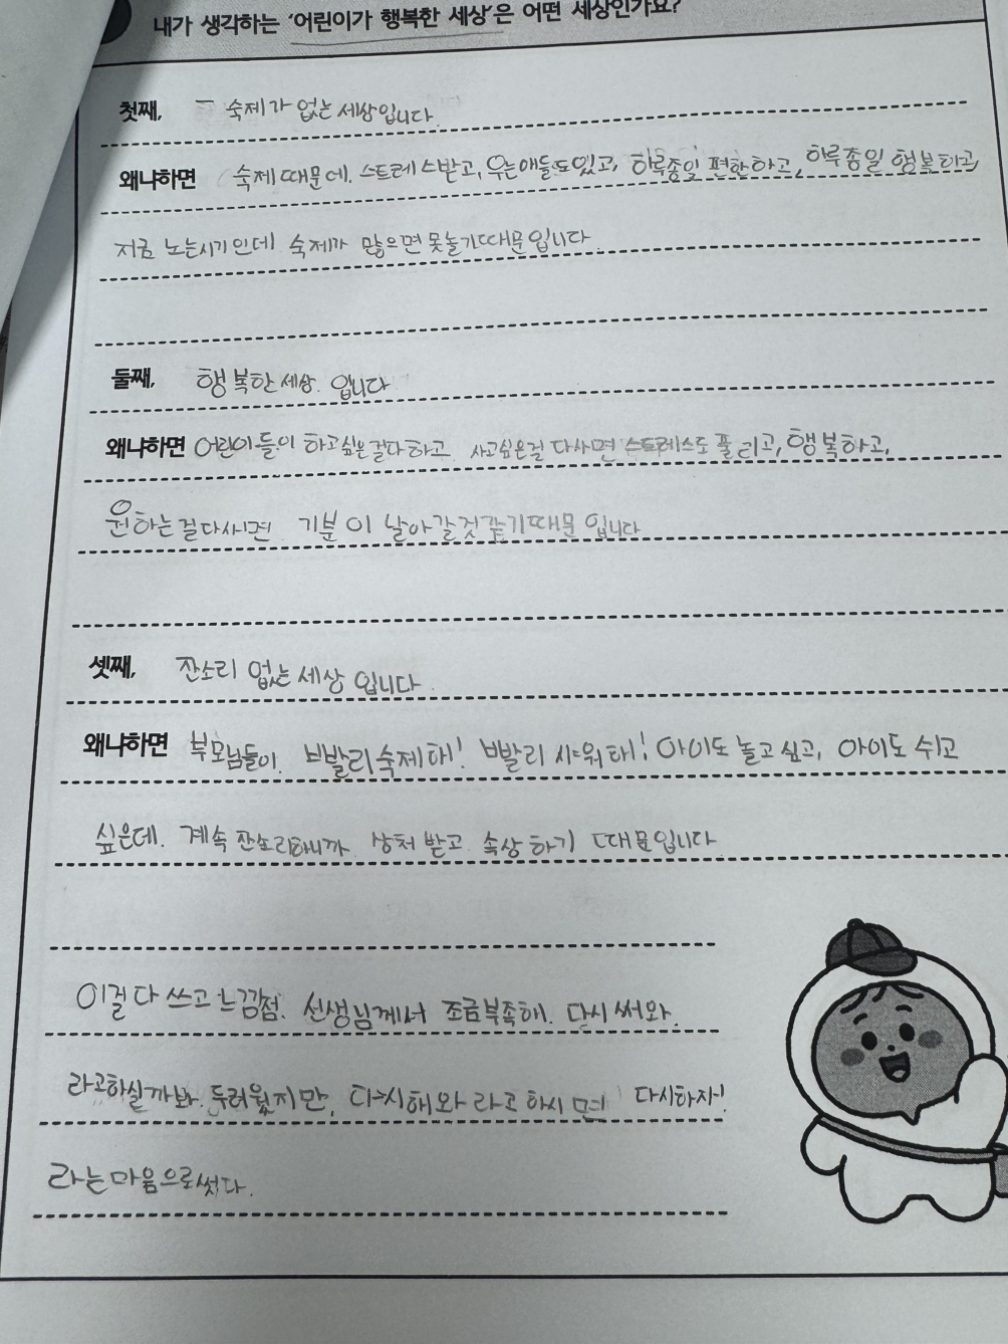 내가 생각하는 '어린이가 행복한 세상'은 어떤 세상인가요?
첫째, 숙제가 없는 세상입니다.
왜냐하면 숙제 때문에. 스트레스받고, 우는애들도있고, 하루종일 편한하고, 하루종일 행복하고,
지금 노는시기인데 숙제가 많으면 못놀기때문입니다.
둘째, 행복한 세상. 입니다
왜냐하면 어린이들이 하고싶은걸다하고 사고싶은걸 다사면 스트레스도 풀리고, 행복하고,
원하는걸다사면 기분이 날아갈것같기때문입니다
셋째, 잔소리 없는 세상 입니다.
왜냐하면 부모님들이. 빨발리숙제해! 빨발리 샤워해! 아이도 놀고 싶고, 아이도 쉬고
싶은데. 계속 잔소리하니까 상처 받고 속상하기 때문입니다.
이걸 다 쓰고 느낌점. 선생님께서 조금부족해. 다시 써와.
라고하실까봐. 두려웠지만, 다시해와 라고 하시면 다시하자!
라는마음으로썻다.